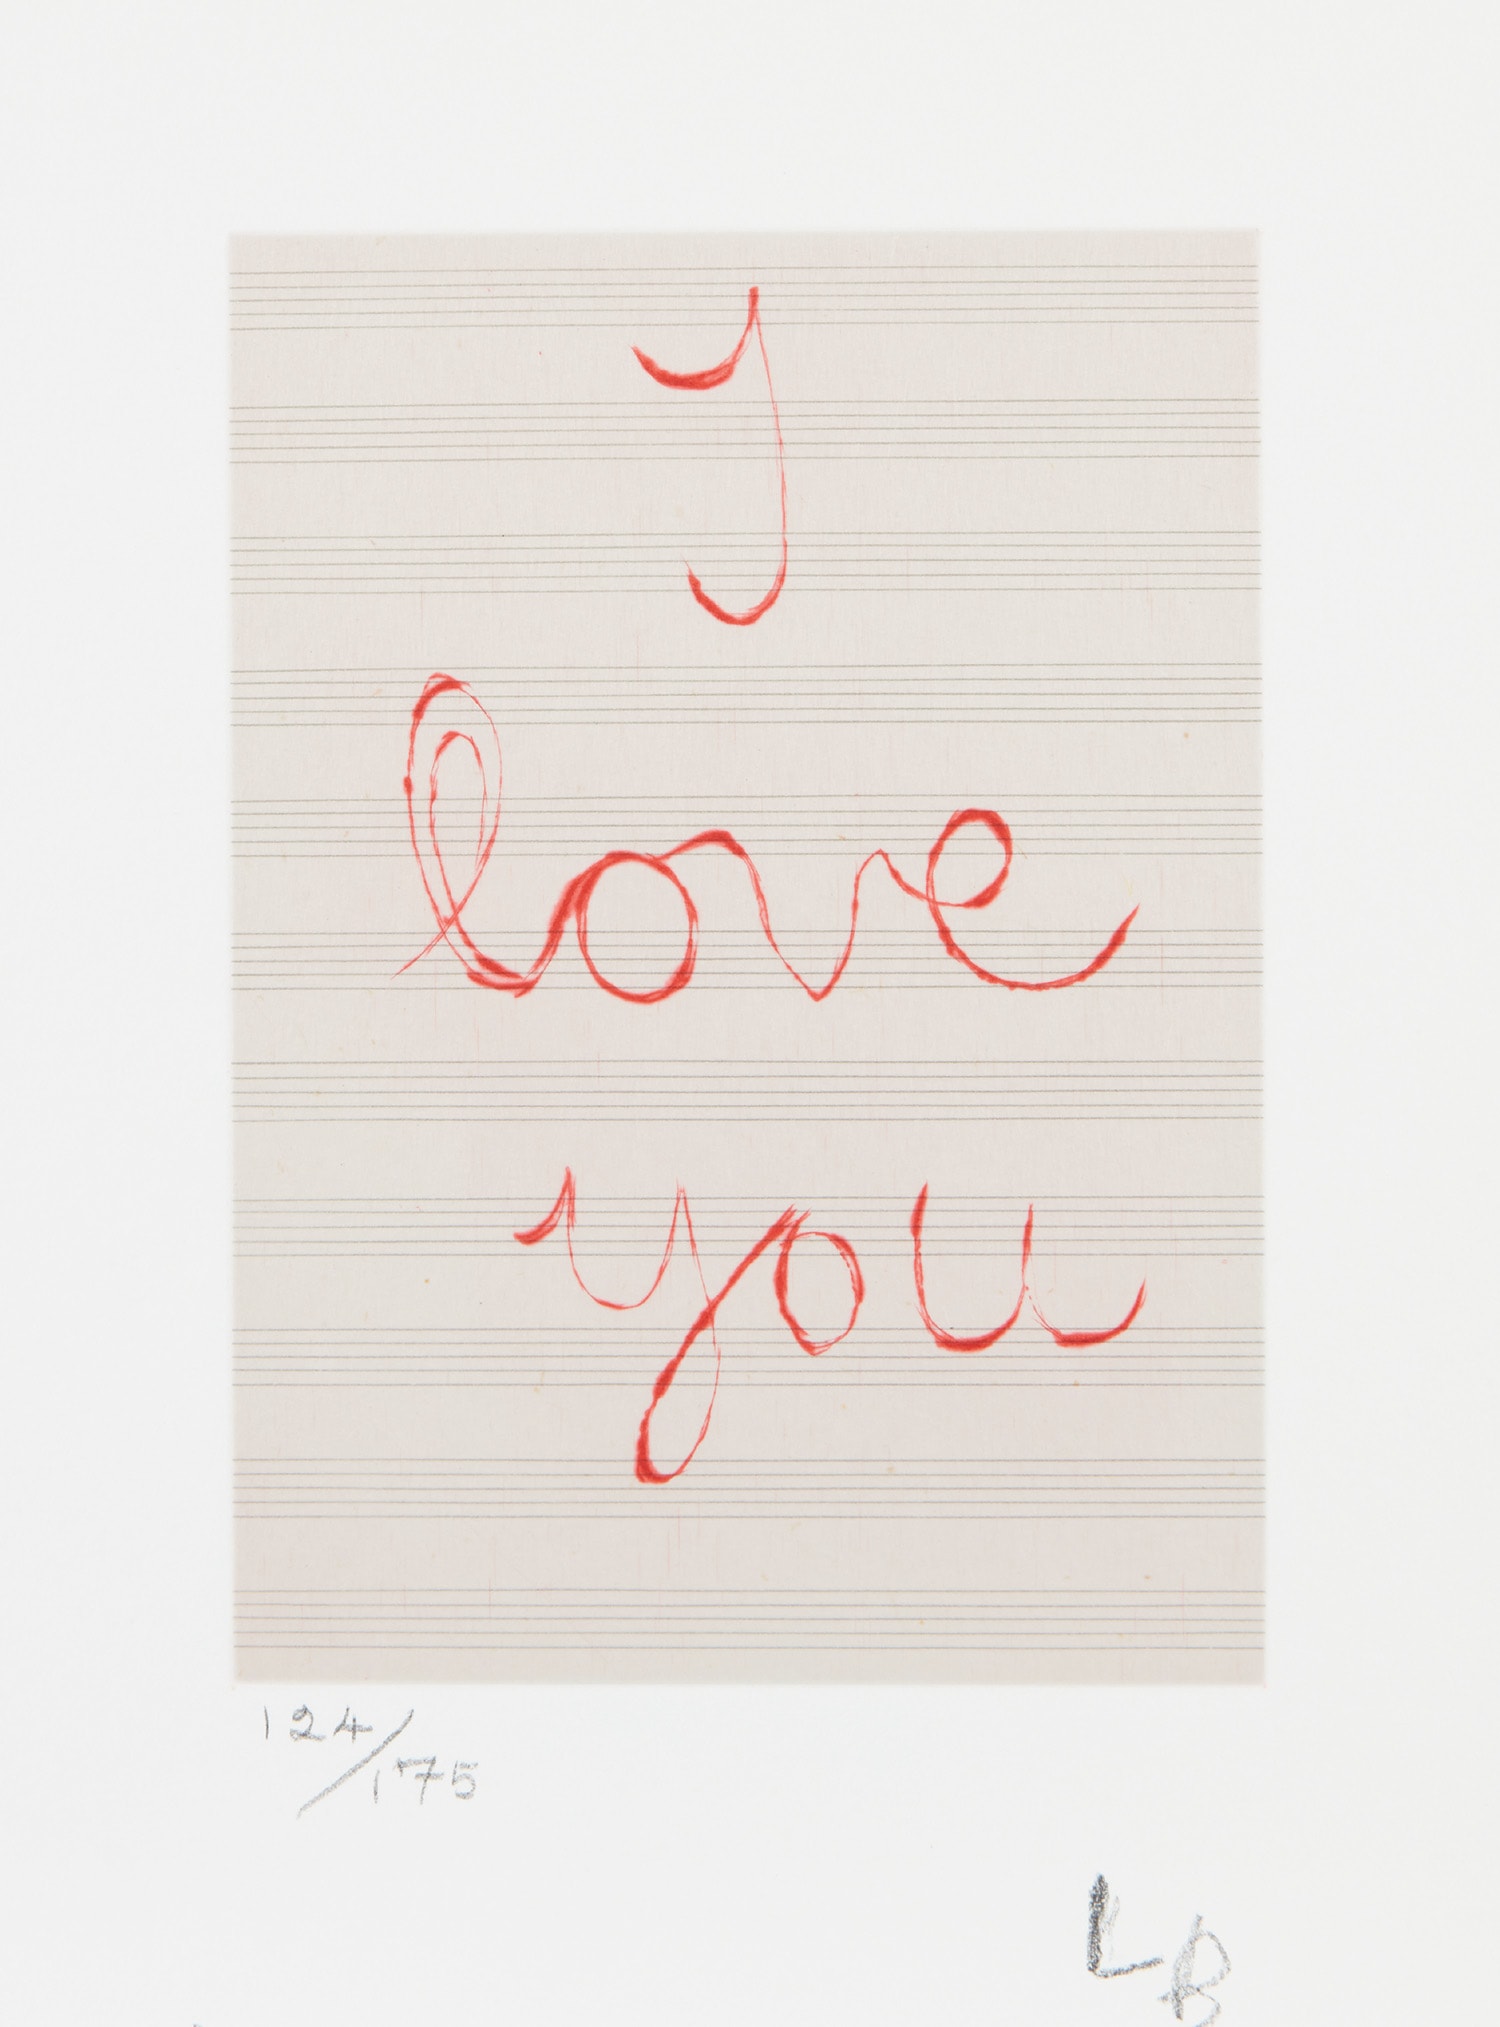 I
love
you
124/175
LB